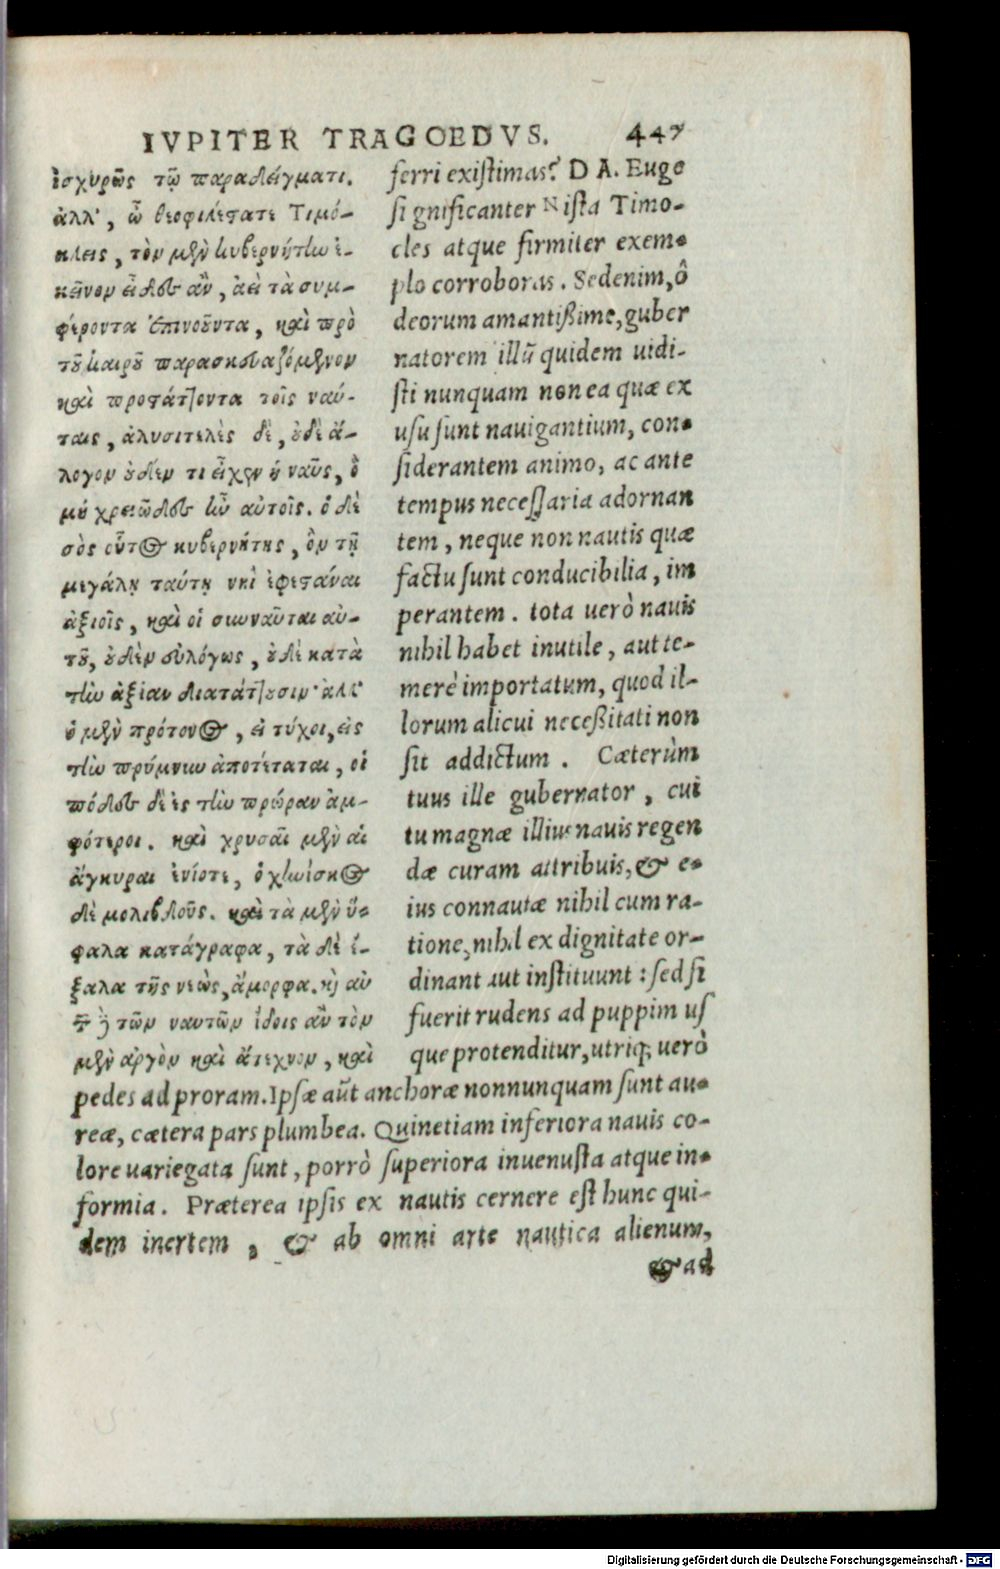 IVPITER TRAGOEDVS. 447
ἰσχυρῶς τῷ παραδείγματι.
ἀλλ', ὦ θεοφιλέστατε Τιμό-
κλεις, τὸν μὲν κυβερνήτην ἐ-
κεῖνον εἶδες ἂν, ἀεὶ τὰ συμ-
φέροντα ἐπινοοῦντα, καὶ πρὸ
τοῦ καιροῦ παρασκευαζόμενον
καὶ προστάττοντα τοῖς ναύ-
ταις, ἀλυσιτελὲς δὲ, οὐδὲ ἄ-
λογον οὐδέν τι εἶχεν ἡ ναῦς, ὃ
μὴ χρειῶδες ἦν αὐτοῖς. ὁ δὲ
σὸς οὗτος κυβερνήτης, ὃν τῇ
μεγάλῃ ταύτῃ νηῒ ἐφεστάναι
ἀξιοῖς, καὶ οἱ συνναῦται αὐ-
τοῦ, οὐδὲν εὐλόγως, οὐδὲ κατὰ
τὴν ἀξίαν διατάττουσιν· ἀλλ'
ὁ μὲν πρότονος, εἰ τύχοι, εἰς
τὴν πρύμναν ἀποτέταται, οἱ
πόδες δὲ ἐς τὴν πρώραν ἀμ-
φότεροι. καὶ χρυσαῖ μὲν αἱ
ἄγκυραι ἐνίοτε, ὁ χηνίσκος
δὲ μολιβδοῦς. καὶ τὰ μὲν ὕ-
φαλα κατάγραφα, τὰ δὲ ἔ-
ξαλα τῆς νεὼς, ἄμορφα. καὶ αὐ
τῶν δὲ τῶν ναυτῶν ἴδοις ἂν τὸν
μὲν ἀργὸν καὶ ἄτεχνον, καὶ
ferri existimas? D A. Euge
significanter N ista Timo-
cles atque firmiter exem-
plo corroboras. Sedenim, ô
deorum amantißime, guber
natorem illũ quidem uidi-
sti nunquam non ea quæ ex
usu sunt nauigantium, con-
siderantem animo, ac ante
tempus necessaria adornan
tem, neque non nautis quæ
factu sunt conducibilia, im
perantem. tota uerò nauis
nihil habet inutile, aut te-
merè importatum, quod il-
lorum alicui neceßitati non
sit addictum. Cæterùm
tuus ille gubernator, cui
tu magnæ illius nauis regen
dæ curam attribuis, & e-
ius connautæ nihil cum ra-
tione, nihil ex dignitate or-
dinant aut instituunt: sed si
fuerit rudens ad puppim us
que protenditur, utriq; uerò
pedes ad proram. Ipsæ aũt anchoræ nonnunquam sunt au-
reæ, cætera pars plumbea. Quinetiam inferiora nauis co-
lore uariegata sunt, porrò superiora inuenusta atque in-
formia. Præterea ipsis ex nautis cernere est hunc qui-
dem inertem, & ab omni arte nautica alienum,
& ad
Digitalisierung gefördert durch die Deutsche Forschungsgemeinschaft - DFG